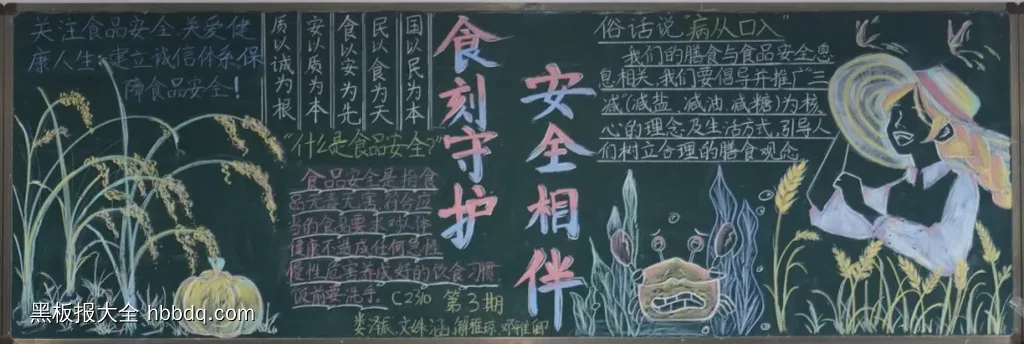 关注食品安全、关爱健
康人生、建立诚信体系保
障食品安全！
国以民为本
民以食为天
食以安为先
安以质为本
质以诚为根
食刻守护
安全相伴
"什么是食品安全"
食品安全是指食
品无毒无害,符合应
当的营养要求,对人体
健康不造成任何急性
慢性危害养成好的饮食习惯
饭前要洗手
C2310 第3期
俗话说"病从口入"
我们的膳食与食品安全息
息相关,我们要倡导并推广"三
减(减盐、减油、减糖)为核
心的理念及生活方式,引导人
们树立合理的膳食观念
黑板报大全 hbbdq.com